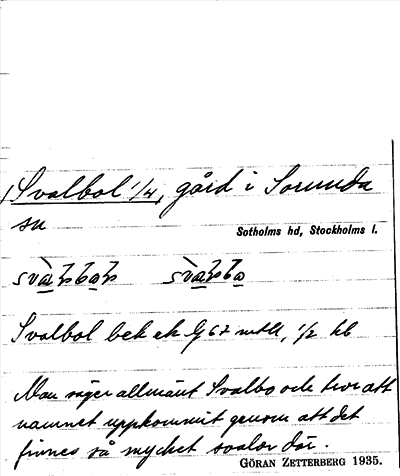 Svalbol 1/4, gård i Sorunda
sn
Sotholms hd, Stockholms l.
Svalbol bek ek G 67 mtl, 1/2 hb
Man säger allmänt Svalbo och tror att
namnet uppkommit genom att det
finnes så mycket svalor där.
GÖRAN ZETTERBERG 1935.